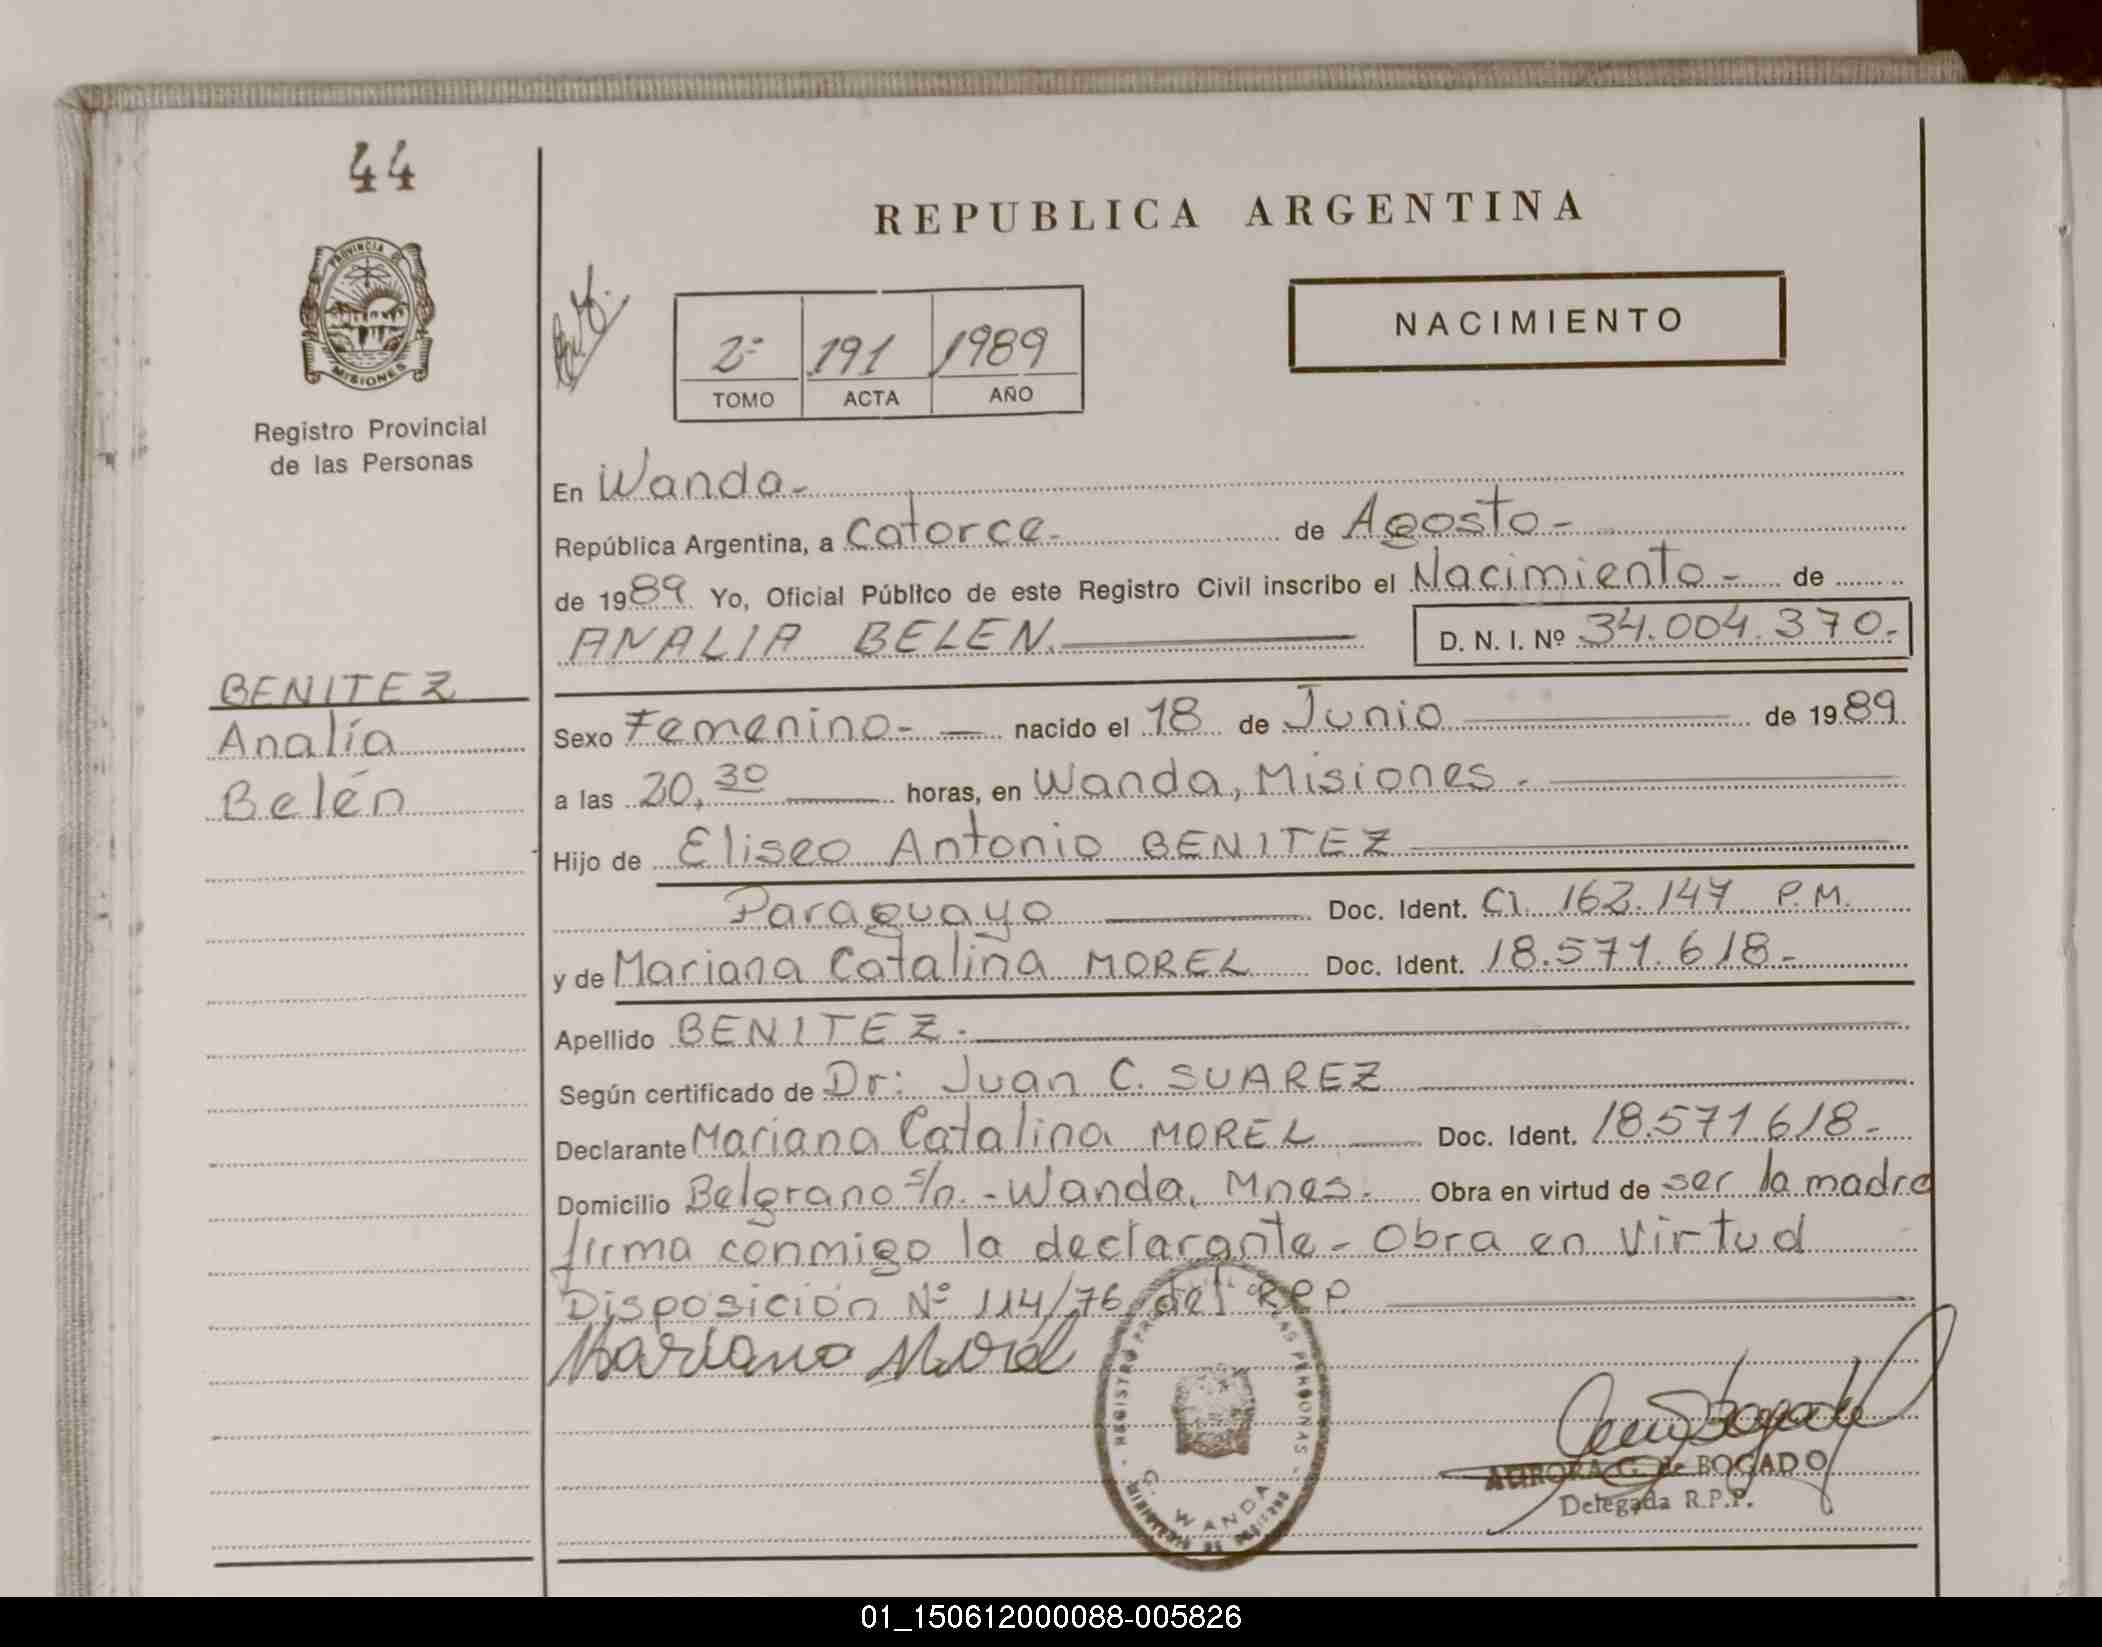 44
PROVINCIA DE
MISIONES
Registro Provincial
de las Personas
REPUBLICA ARGENTINA
NACIMIENTO
2º 191 1989
TOMO ACTA AÑO
En Wanda-
República Argentina, a Catorce- de Agosto-
de 1989 Yo, Oficial Público de este Registro Civil inscribo el Nacimiento- de
ANALIA BELEN. D. N. I. Nº 34.004.370.-
BENITEZ
Analía
Belén
Sexo Femenino.- nacido el 18 de Junio de 1989
a las 20,30 horas, en Wanda, Misiones.-
Hijo de Eliseo Antonio BENITEZ
Paraguayo Doc. Ident. CI. 162.147 P.M.
y de Mariana Catalina MOREL Doc. Ident. 18.571.618.-
Apellido BENITEZ.
Según certificado de Dr: Juan C. SUAREZ
Declarante Mariana Catalina MOREL Doc. Ident. 18.571.618.-
Domicilio Belgrano s/n.-Wanda, Mnes. Obra en virtud de ser la madre
firma conmigo la declarante- Obra en Virtud
Disposición Nº 114/76 del R.P.P.
Mariana Morel
REGISTRO PROVINCIAL DE LAS PERSONAS
WANDA
AURORA G. de BOGADO
Delegada R.P.P.
01_150612000088-005826